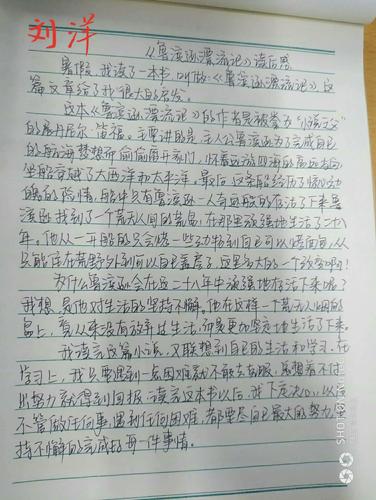 刘洋
《鲁滨逊漂流记》读后感
暑假，我读了一本书，叫做《鲁滨逊漂流记》，这
篇文章给了我很大的启发。
这本《鲁滨逊漂流记》的作者是被奉为“小说之父”
的丹尼尔·笛福。主要讲的是，主人公鲁滨逊为了完成自己
的航海梦想而偷偷离开家门，怀着远游四海的高远志向
坐船穿越了大西洋和太平洋。最后，这条船经历了惊心动
魄的险情，船中只有鲁滨逊一人奇迹般的存活了下来鲁
滨逊找到了一个荒无人烟的荒岛，在那里顽强地生活了二十八
年。他从一开始的只会烧一些动物到自己可以烤面包，从
只能住在荒野外到可以自己盖房子，这是多大的一个改变啊！
为什么鲁滨逊会在这二十八年中顽强地存活下来呢？
我想，是他对生活的坚持不懈。他在这样一个荒无人烟的
岛上，看从来没有放弃过生活，而是更加坚定地生活了下来。
我读完这篇小说，又联想到自己的生活和学习，在
学习上，我只要遇到一点困难就不敢去克服，总想着不付
出努力就得到回报，读完这本书以后，我下定决心，以后
不管做任何事，遇到任何困难，都要尽自己最大的努力，坚
持不懈的完成好每一件事情。
SHOT ON